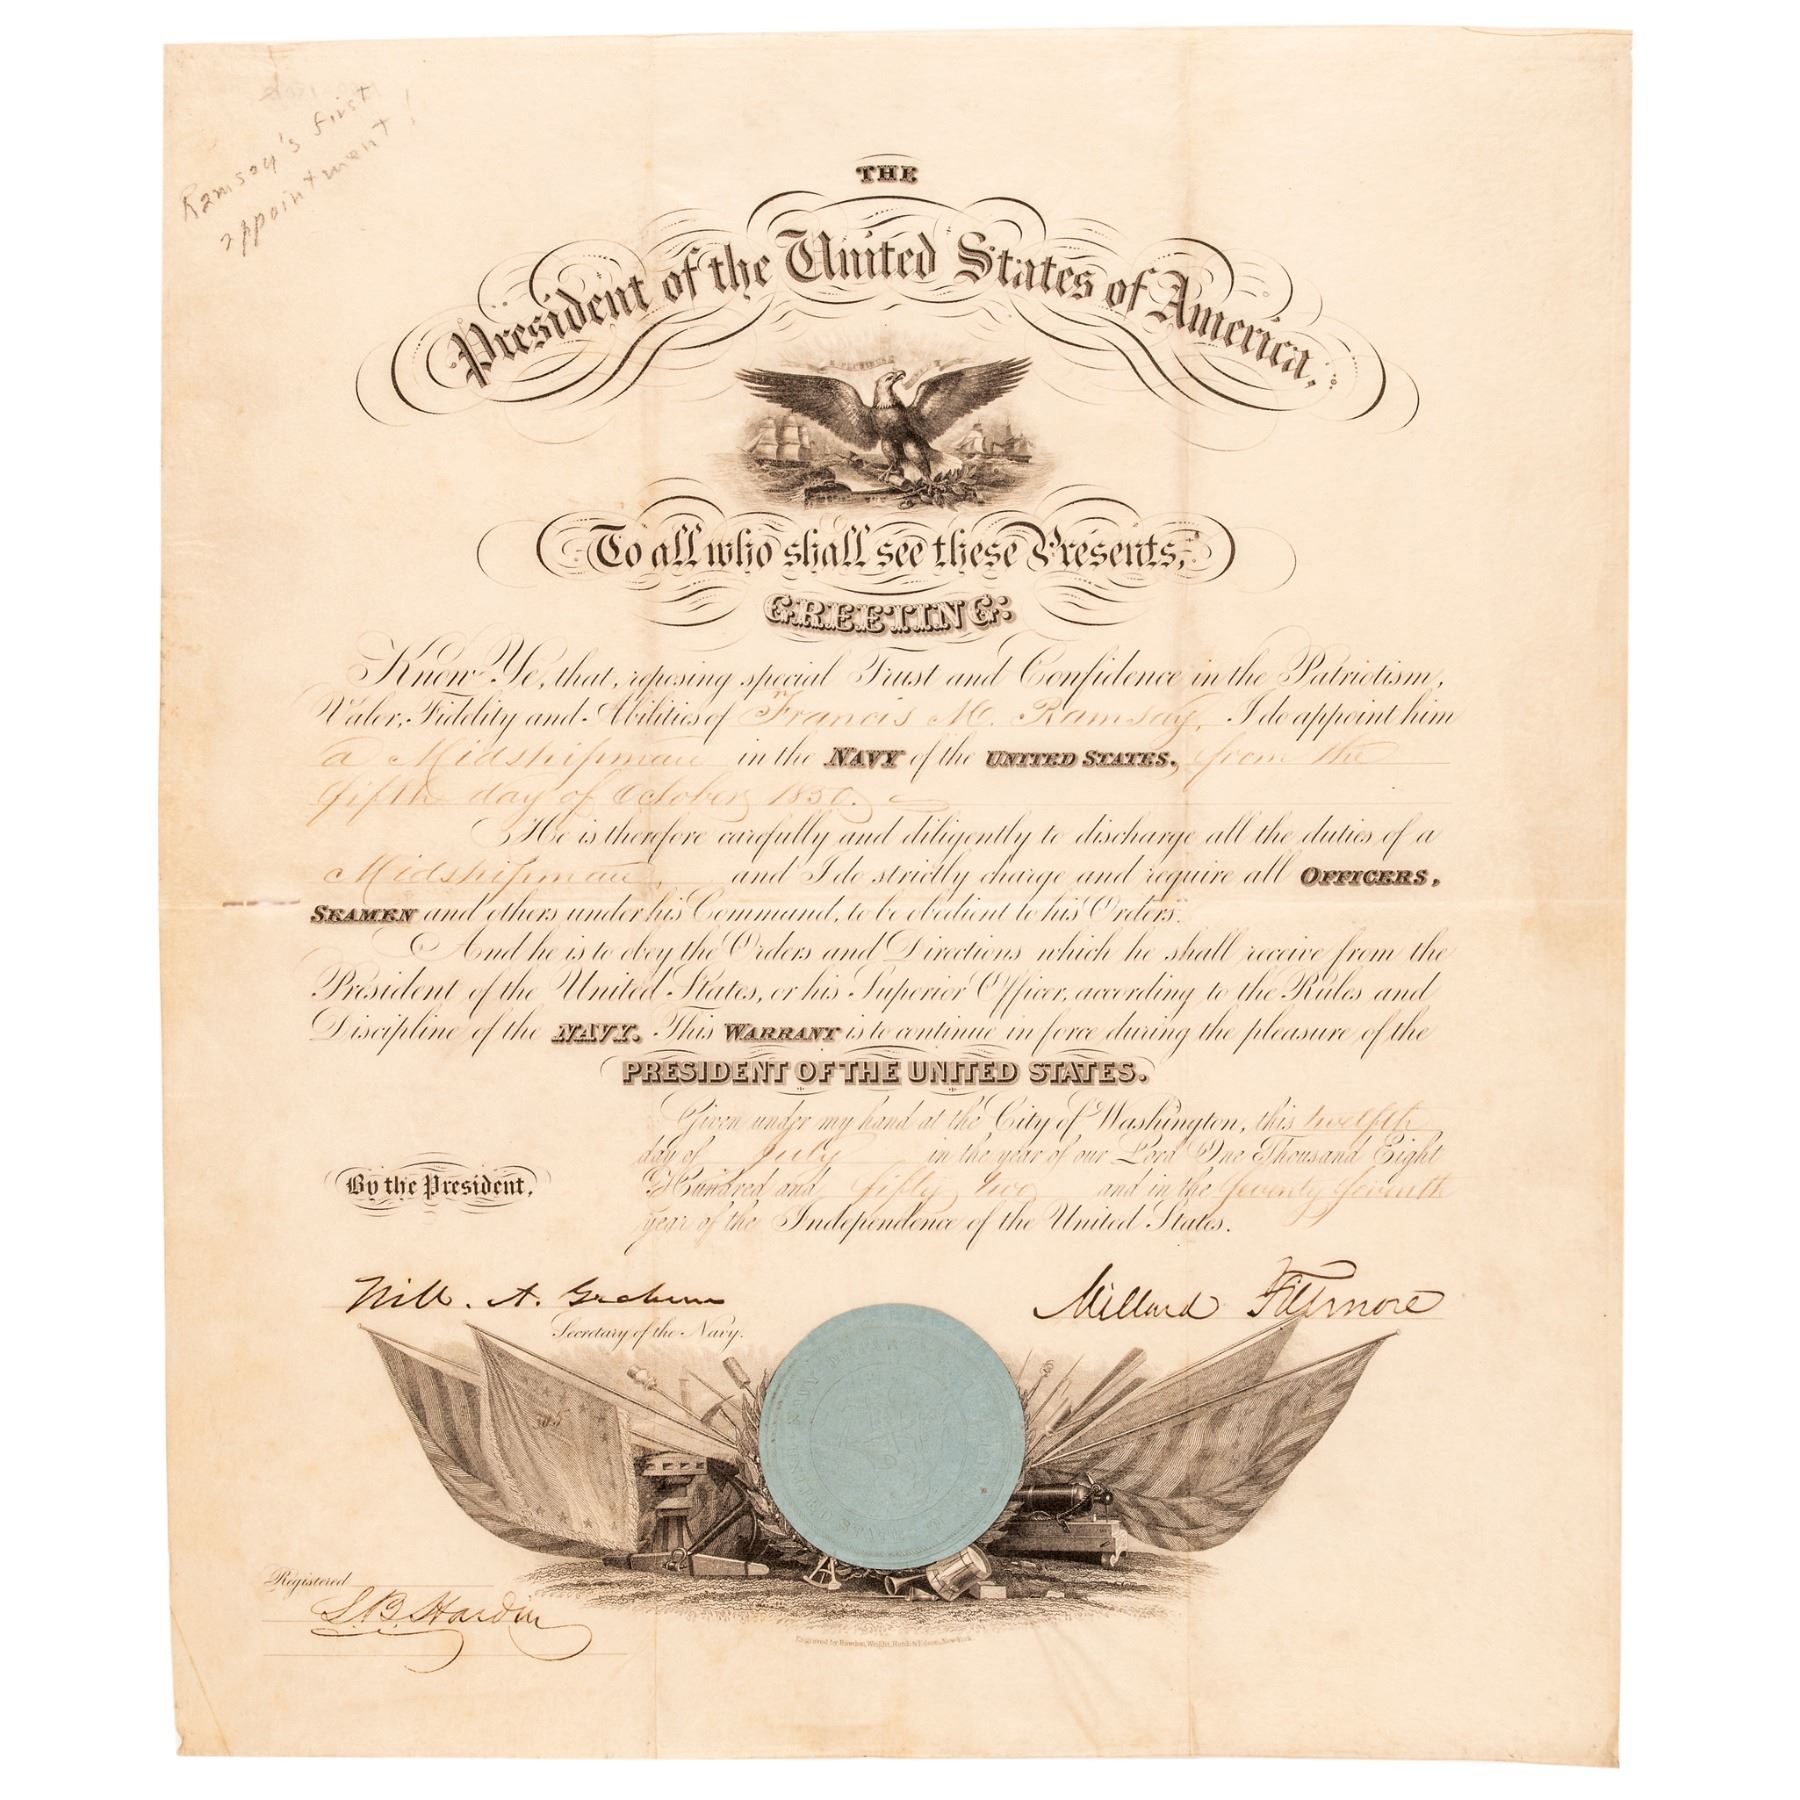 Ramsay's first
appointment!
THE
President of the United States of America,
To all who shall see these Presents,
GREETING:
Know Ye, that, reposing special Trust and Confidence in the Patriotism,
Valor, Fidelity and Abilities of Francis M. Ramsay, I do appoint him
a Midshipman in the NAVY of the UNITED STATES, from the
fifth day of October, 1850.
He is therefore carefully and diligently to discharge all the duties of a
Midshipman, and I do strictly charge and require all OFFICERS,
SEAMEN and others under his Command, to be obedient to his Orders.
And he is to obey the Orders and Directions which he shall receive from the
President of the United States, or his Superior Officer, according to the Rules and
Discipline of the NAVY. This WARRANT is to continue in force during the pleasure of the
PRESIDENT OF THE UNITED STATES.
Given under my hand at the City of Washington, this twelfth
day of July in the year of our Lord One Thousand Eight
Hundred and fifty two and in the Seventy Seventh
year of the Independence of the United States.
By the President,
Will. A. Graham
Millard Fillmore
Secretary of the Navy.
NAVY DEPARTMENT
UNITED STATES
305
Registered
S.B. Hardin
Engraved by Rawdon, Wright, Hatch & Edson, New-York